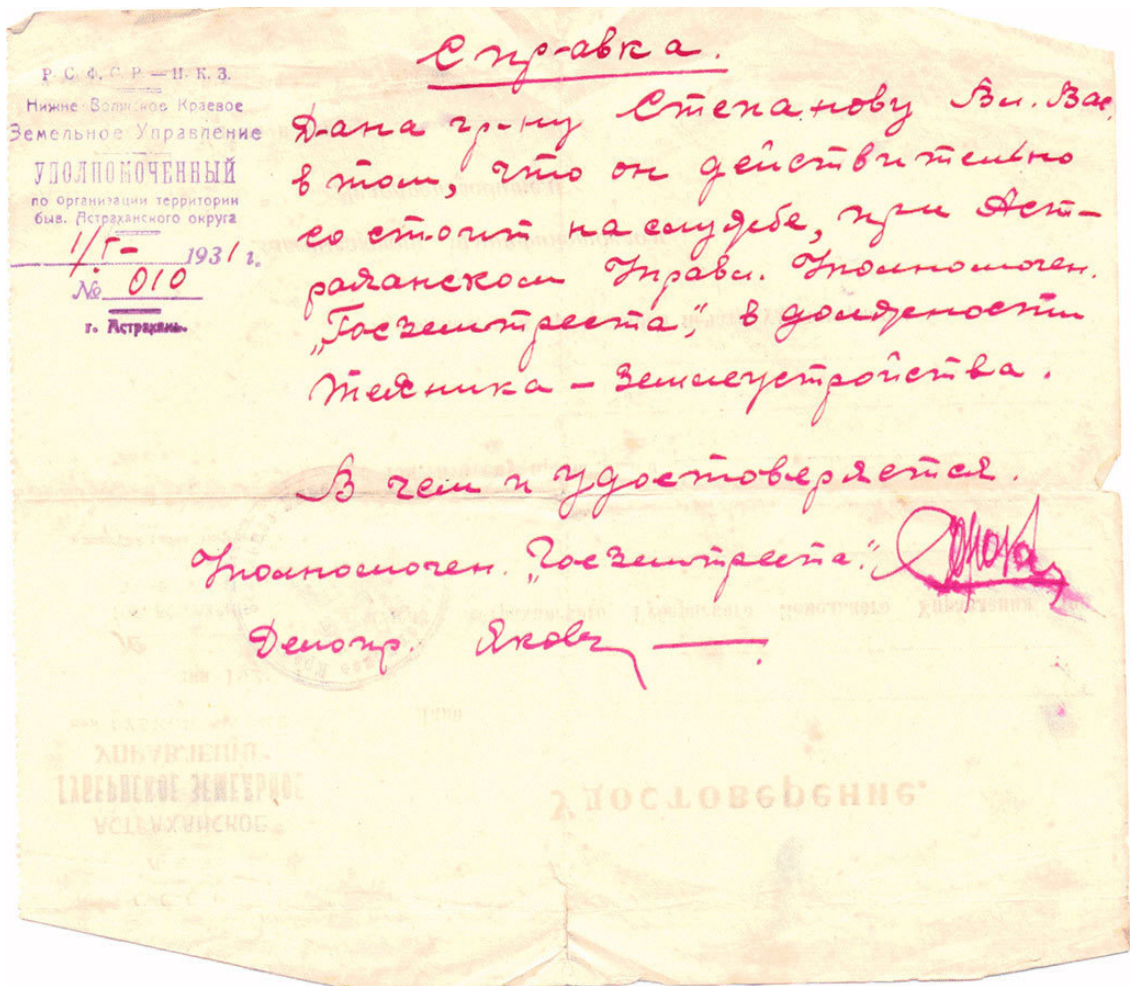 Справка.
Р. С. Ф. С. Р. — Н. К. З.
Нижне Волжское Краевое
Земельное Управление
УПОЛНОМОЧЕННЫЙ
по организации территории
быв. Астраханского округа
1/I- 1931 г.
№ 010
г. Астрахань.
Дана гр-ну Степанову Вл. Вас.
в том, что он действительно
состоит на службе, при Аст-
раханском Управл. Уполномочен.
„Госземтреста“, в должности
Техника – Землеустройства.
В чем и удостоверяется.
Уполномочен. „Госземтреста“:
Делопр.
Удостоверение.
АСТРАХАНСКОЕ
ГУБЕРНСКОЕ ЗЕМЕЛЬНОЕ
УПРАВЛЕНИЕ